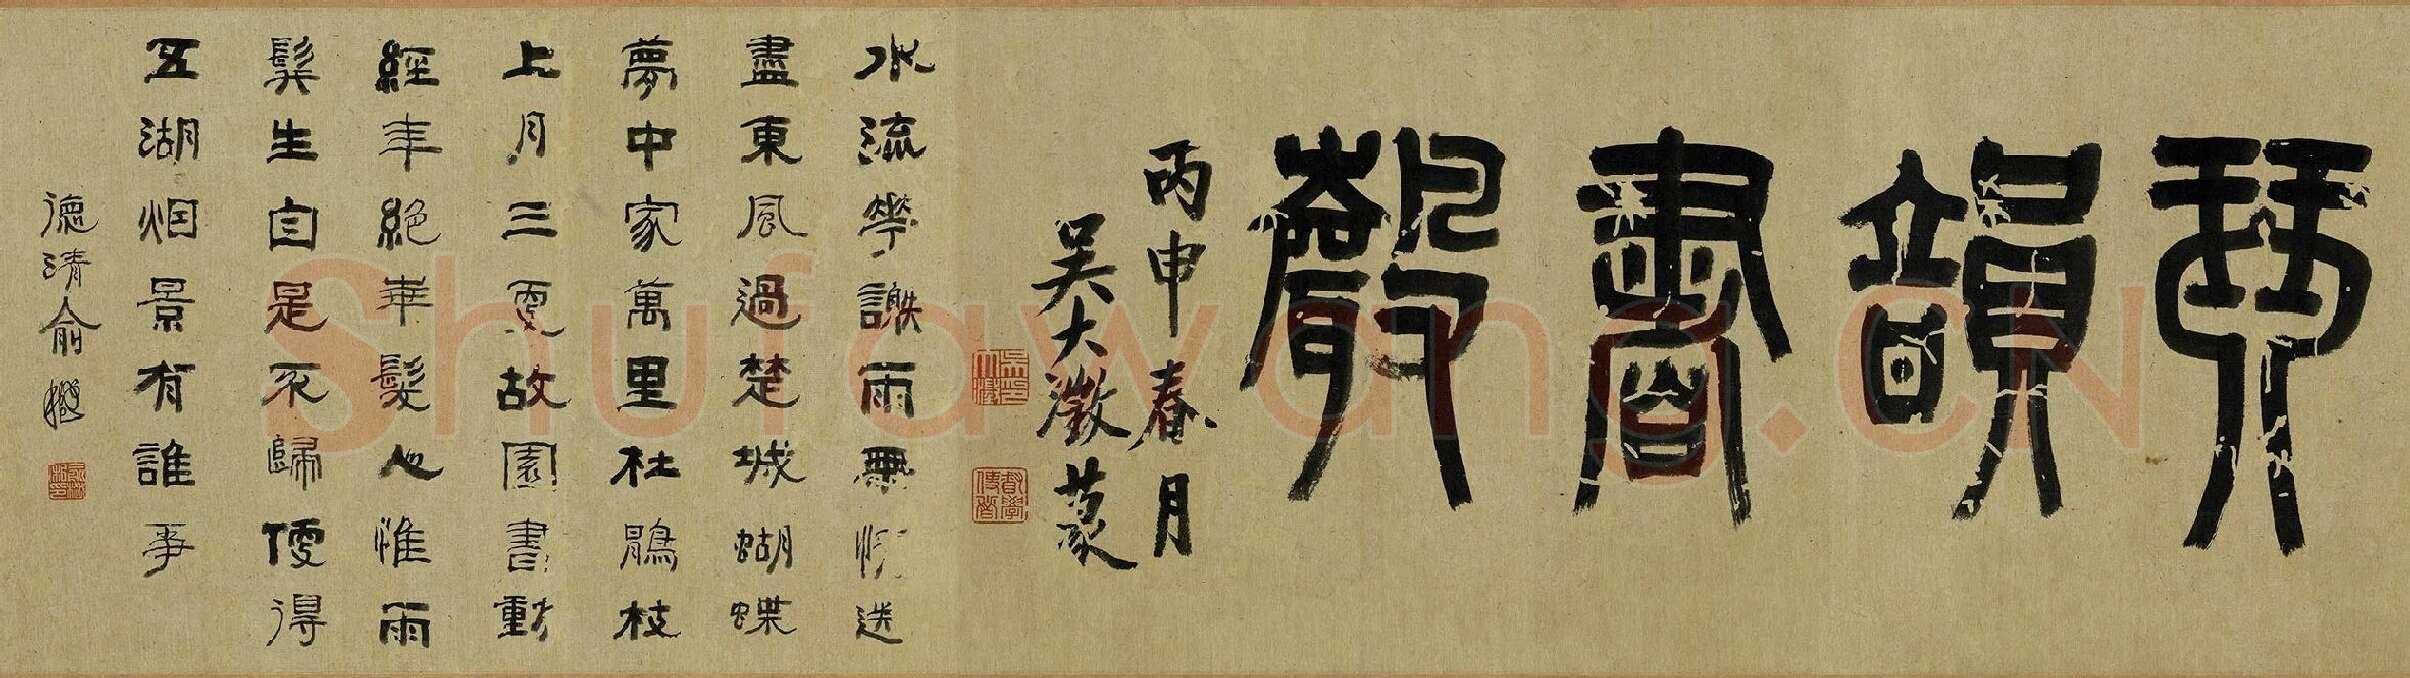 琴韻書聲
丙申春月
吳大澂篆
吳印大澂
水流華謝兩無情送
盡東風過楚城蝴蝶
夢中家萬里杜鵑枝
上月三更故園書動
經年絕華髮心惟兩
鬢生自是不歸便得
五湖烟景有誰爭
德清俞樾
Shufawang.CN